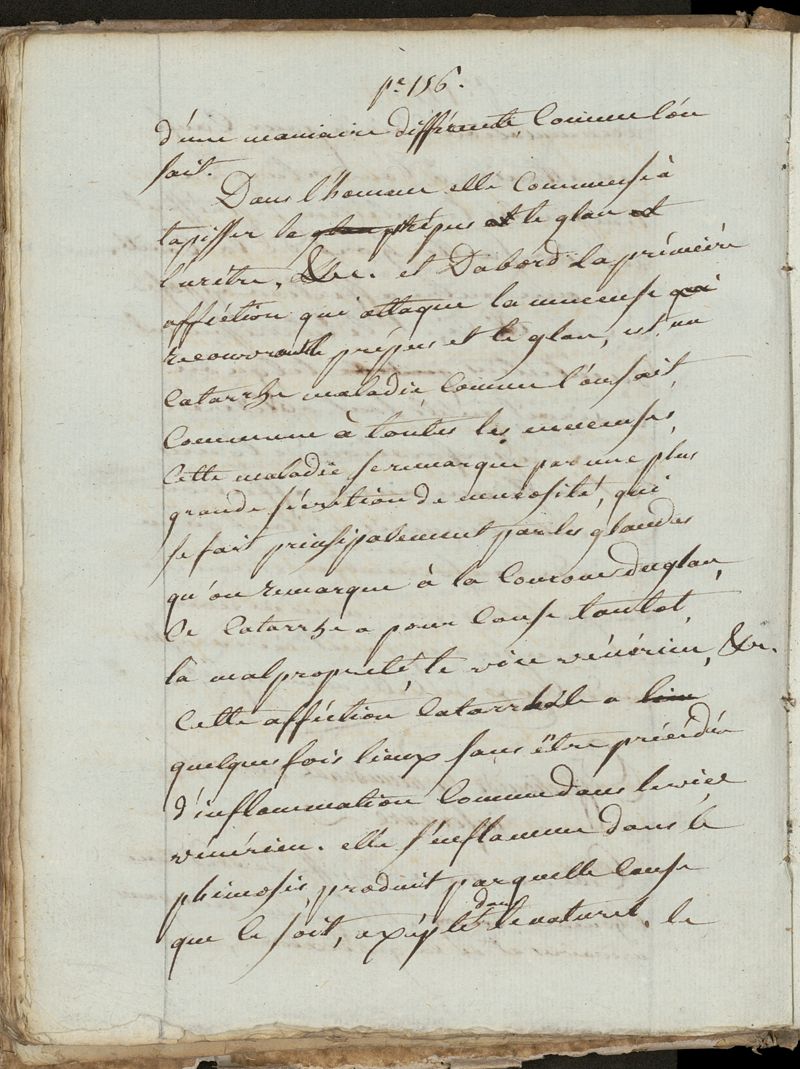 pe 156.
d'une maniaire différente, Comme l'on
sait.
Dans l'homme elle Commense à
tapisser le glan prépus et le glan et
l'urètre, &c. et Dabord La prémière
afféction qui attaque la muceuse qui
recouvrant le prépus et le glan, est un
Catarrhe maladie Comme l'on sait
Commune à toutes les muceuses,
Cette maladie se remarque par une plus
grande sécrétion de mucosité, qui
se fait prinsipalement par les glandes
qu'on remarque à la Couronne du glan,
Ce Catarrhe a pour Cause tantot,
la malpropreté, le vice vénérien, &c.
Cette afféction Catarrhale a lieu
quelques fois lieux sans être précédée
d'inflammation Comme dans le vice
vénérien. elle s'enflamme dans le
phimosis, produit par quelle Cause
que le soit, exépté dans le naturel. le